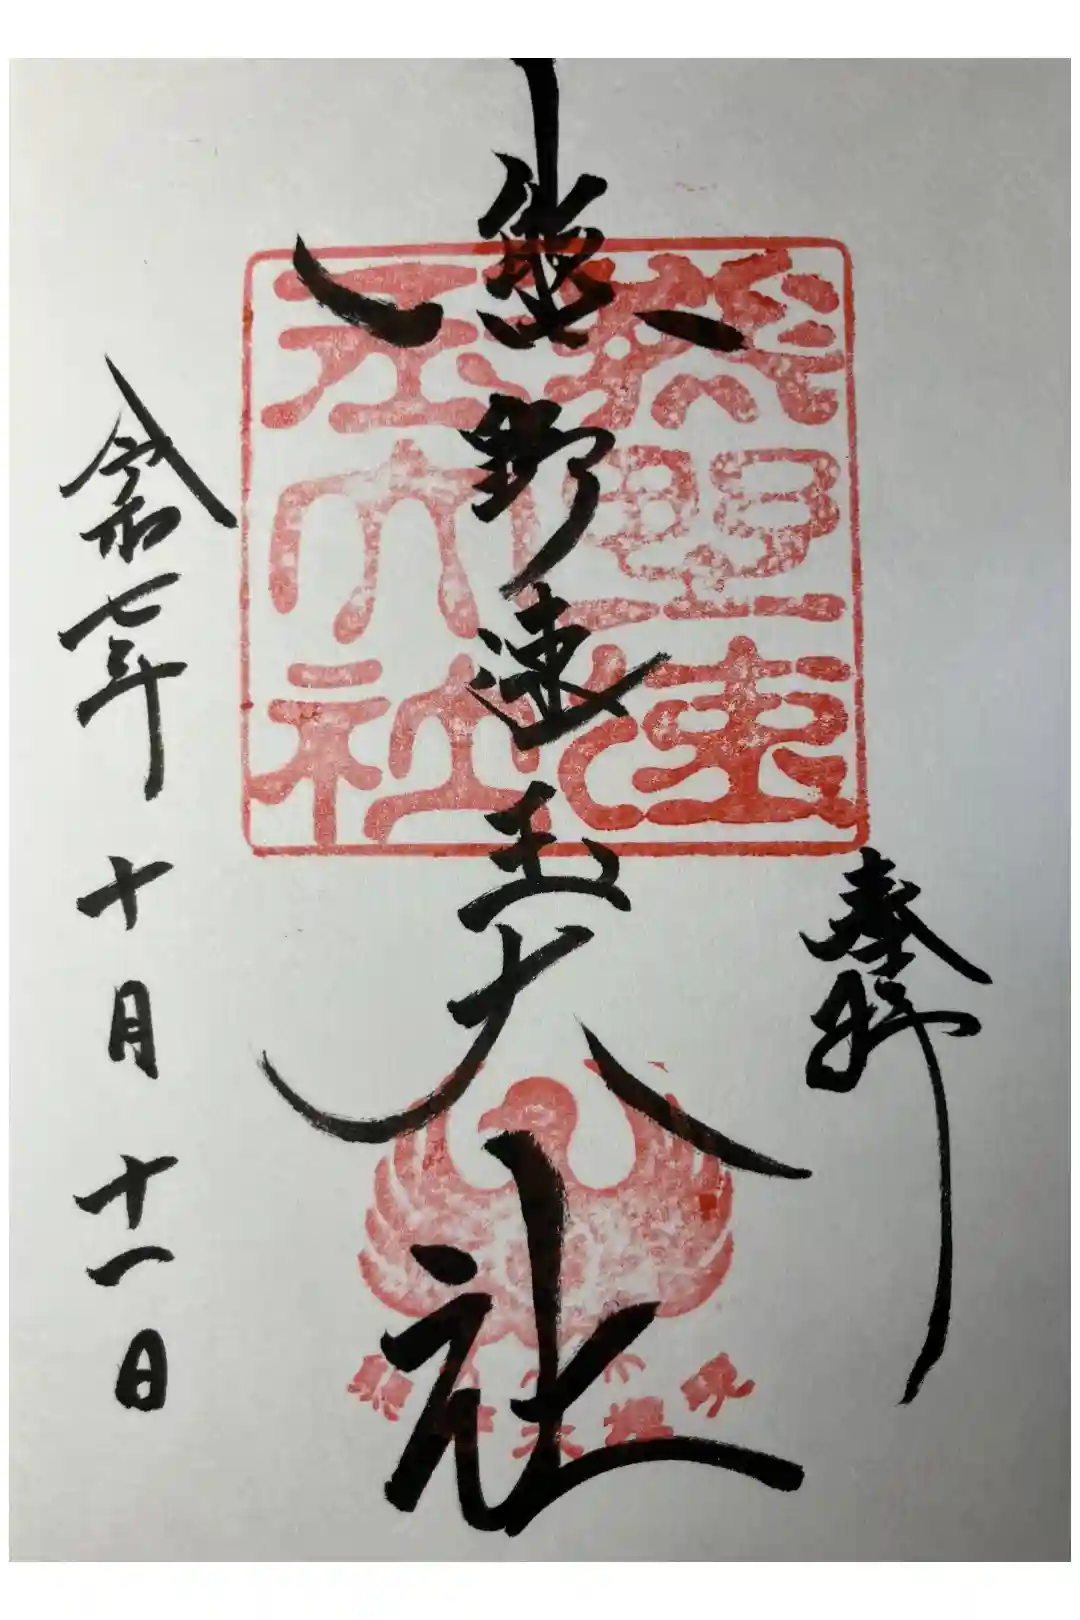 奉拝
熊野速玉大社
熊野速
玉大社
熊野大權現
令和七年十月十一日